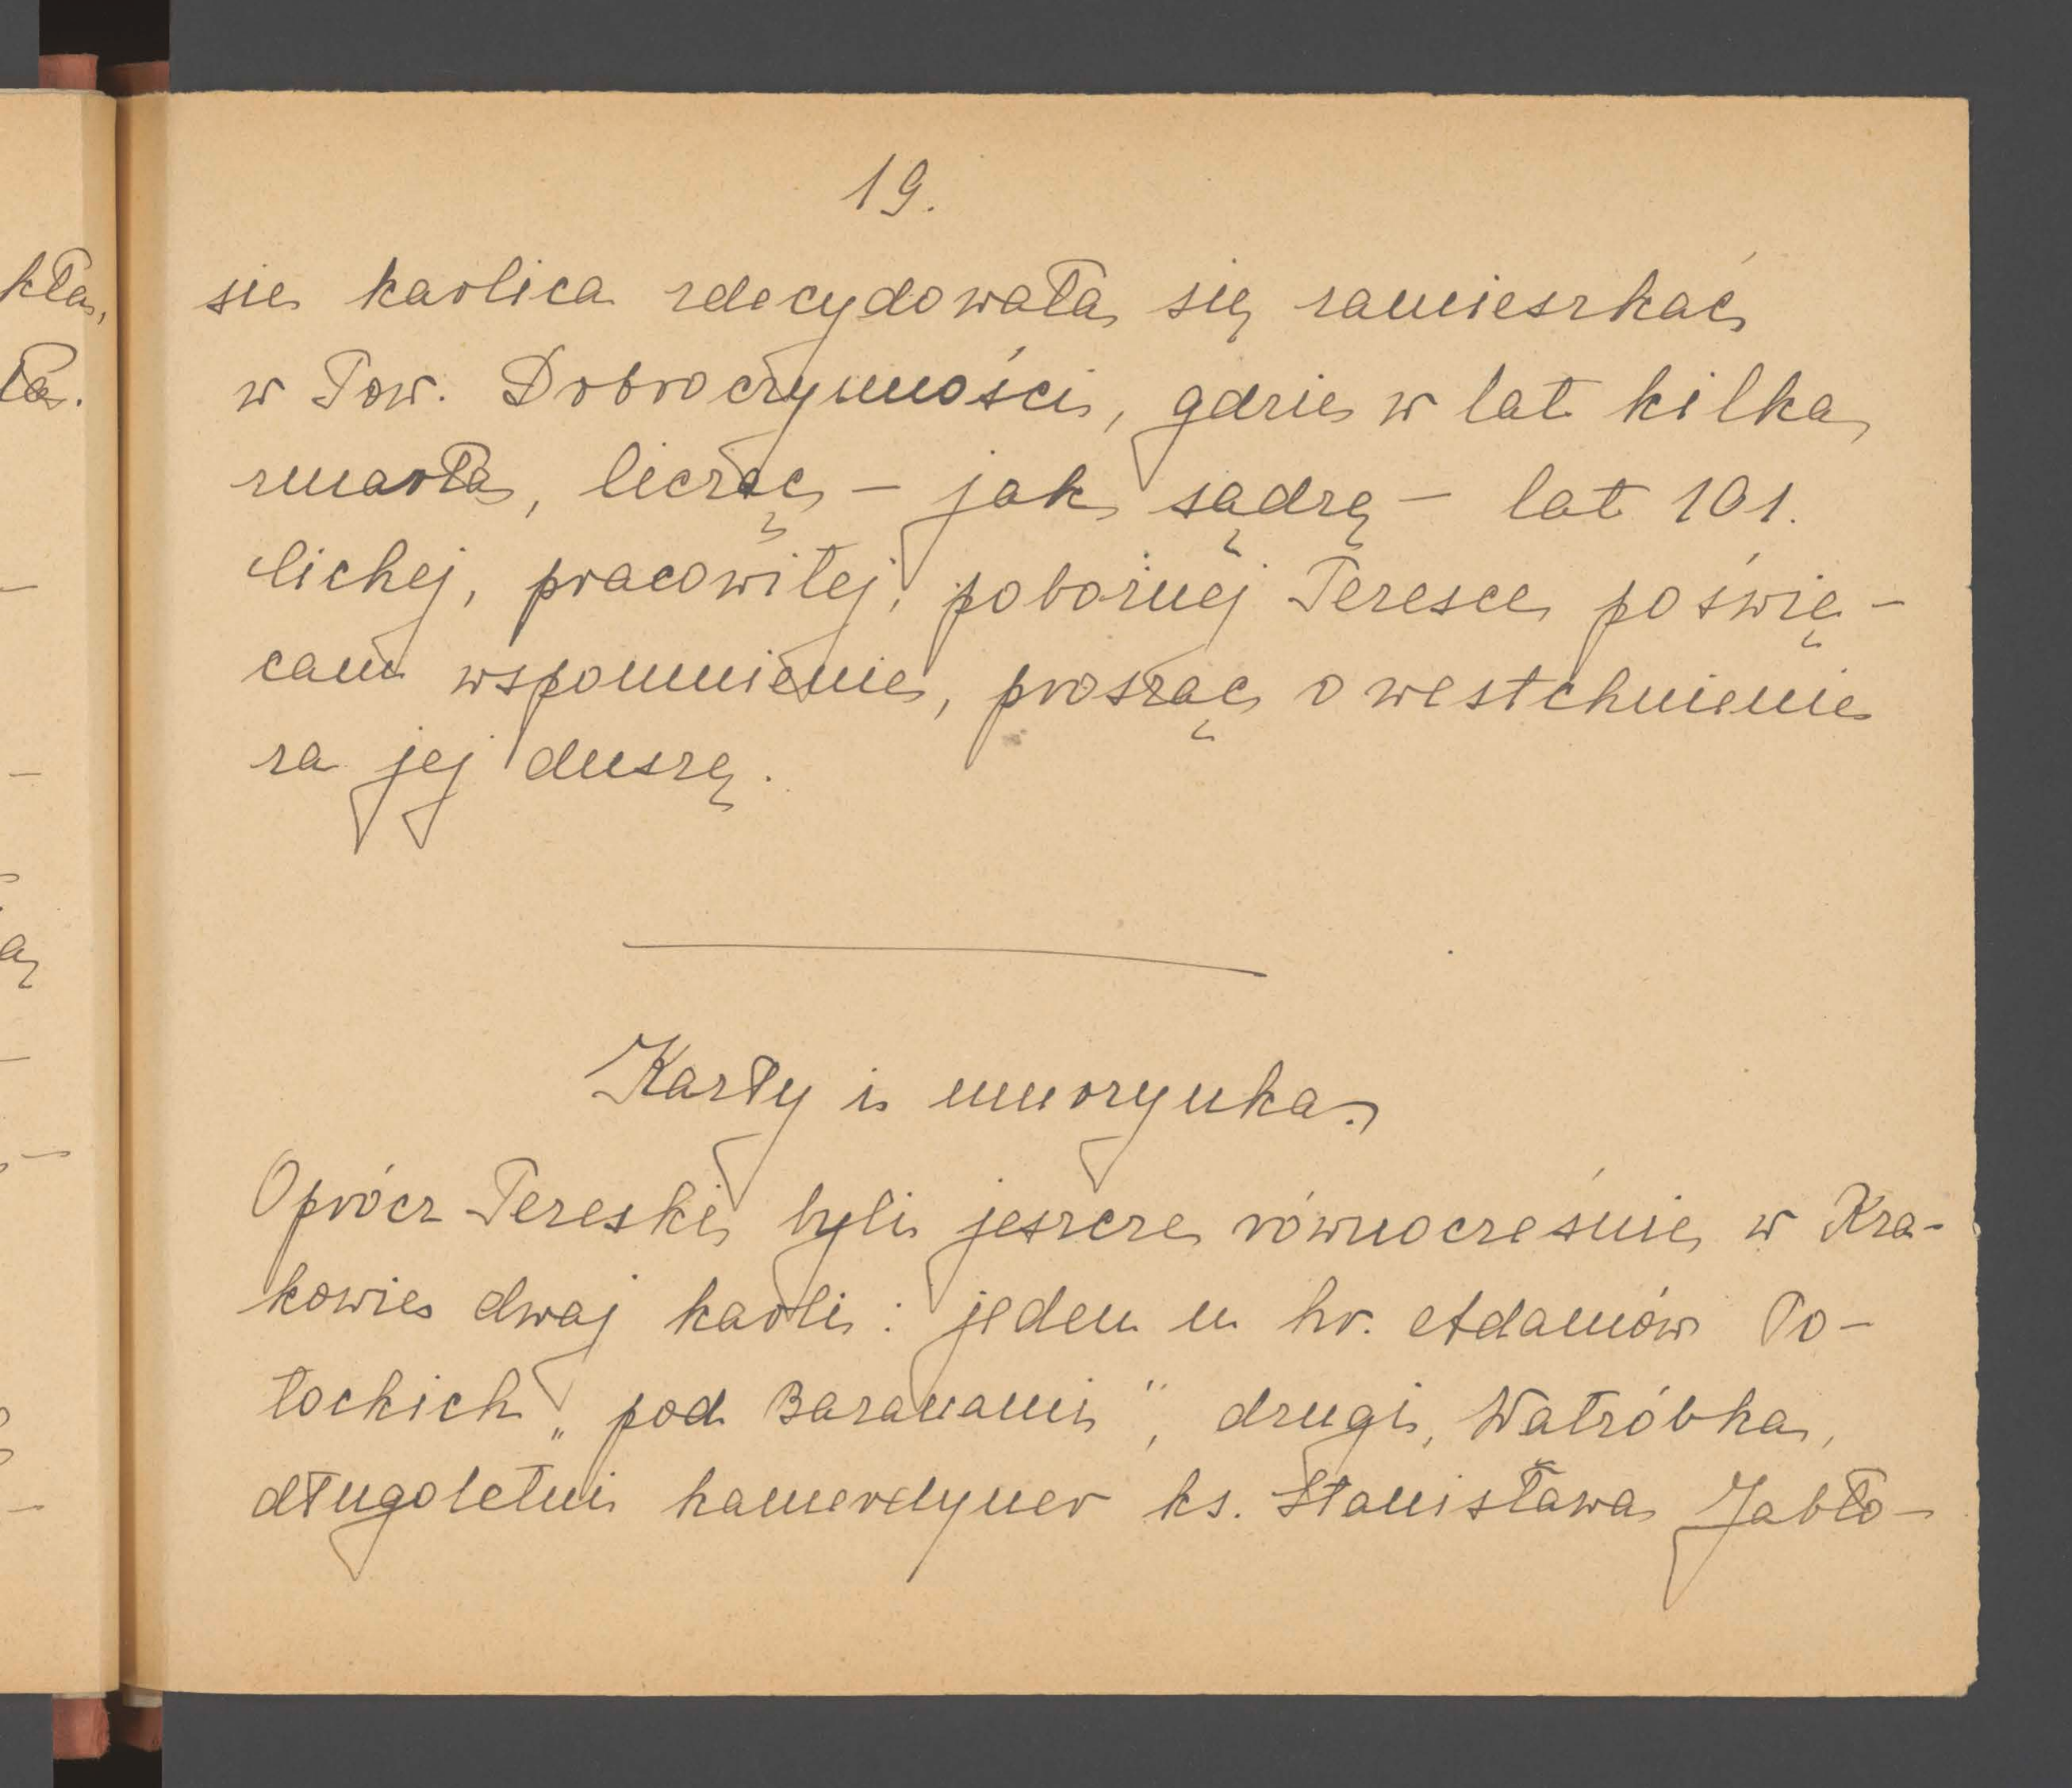 19.
sie karlica zdecydowała się zamieszkać
w Tow. Dobroczynności, gdzie w lat kilka
zmarła, licząc – jak sądzę – lat 101.
Cichej, pracowitej, pobożnej Teresce poświę-
cam wspomnienie, prosząc o westchnienie
za jej duszę.
Karły i murzynka.
Oprócz Tereski byli jeszcze równocześnie w Kra-
kowie dwaj karli: jeden u hr. Adamów Po-
tockich „pod Baranami", drugi, Watróbka,
długoletni kamerdyner ks. Stanisława Jabło-
kła,
ła.